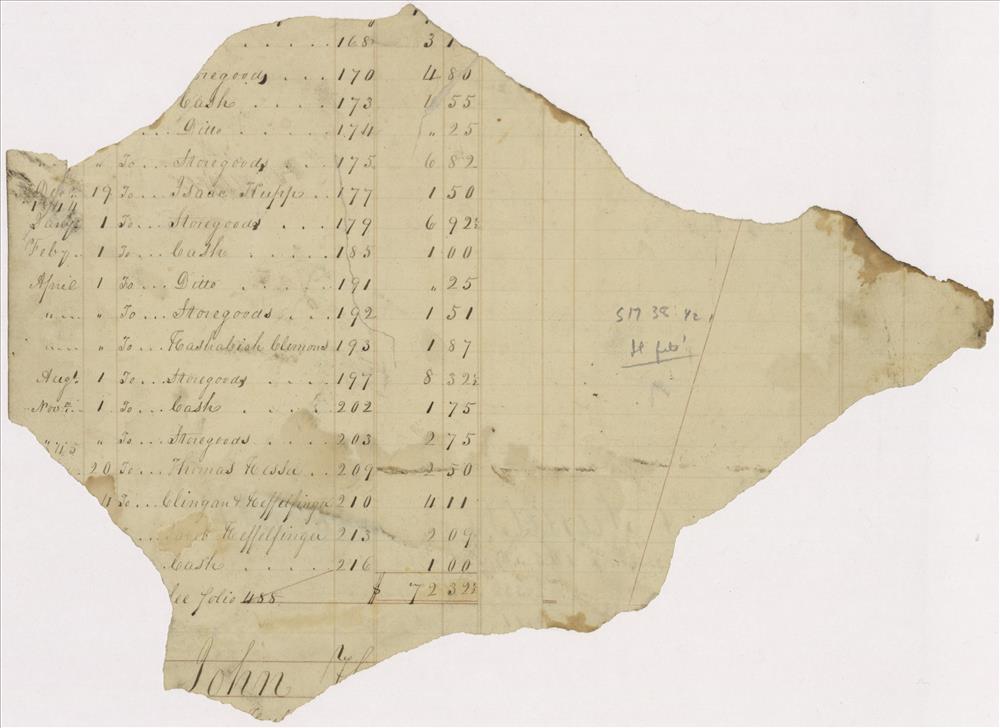 . . . . . 168 3 1
oregoods . . . 170 4 80
Cash . . . . 173 1 55
. . . Ditto . . . . . 174 " 25
" To . . . Storegoods . . 175 6 82
19 To . . . Isaac Hupp . . 177 1 50
1844
Jany 1 To . . . Storegoods . . . 179 6 92½
Feby . . 1 To . . . Cash . . . . . 185 1 00
April 1 To . . . Ditto . . . . . 191 " 25
" " To . . . Storegoods . . . 192 1 51
" " To . . . Hashabish Clemons 193 1 87
Augt. 1 To . . . Storegoods . . . 197 8 32½
Novr. 1 To . . . Cash . . . . . 202 1 75
" " To . . . Storegoods . . . . 203 2 75
20 To . . . Thomas Hessa . . 209 2 50
4 To . . . Clingan & Heffelfinger 210 4 11
. . . Jacob Heffelfinger 213 2 09
Cash . . . . . 216 1 00
see folio 455 $ 72 32½
John